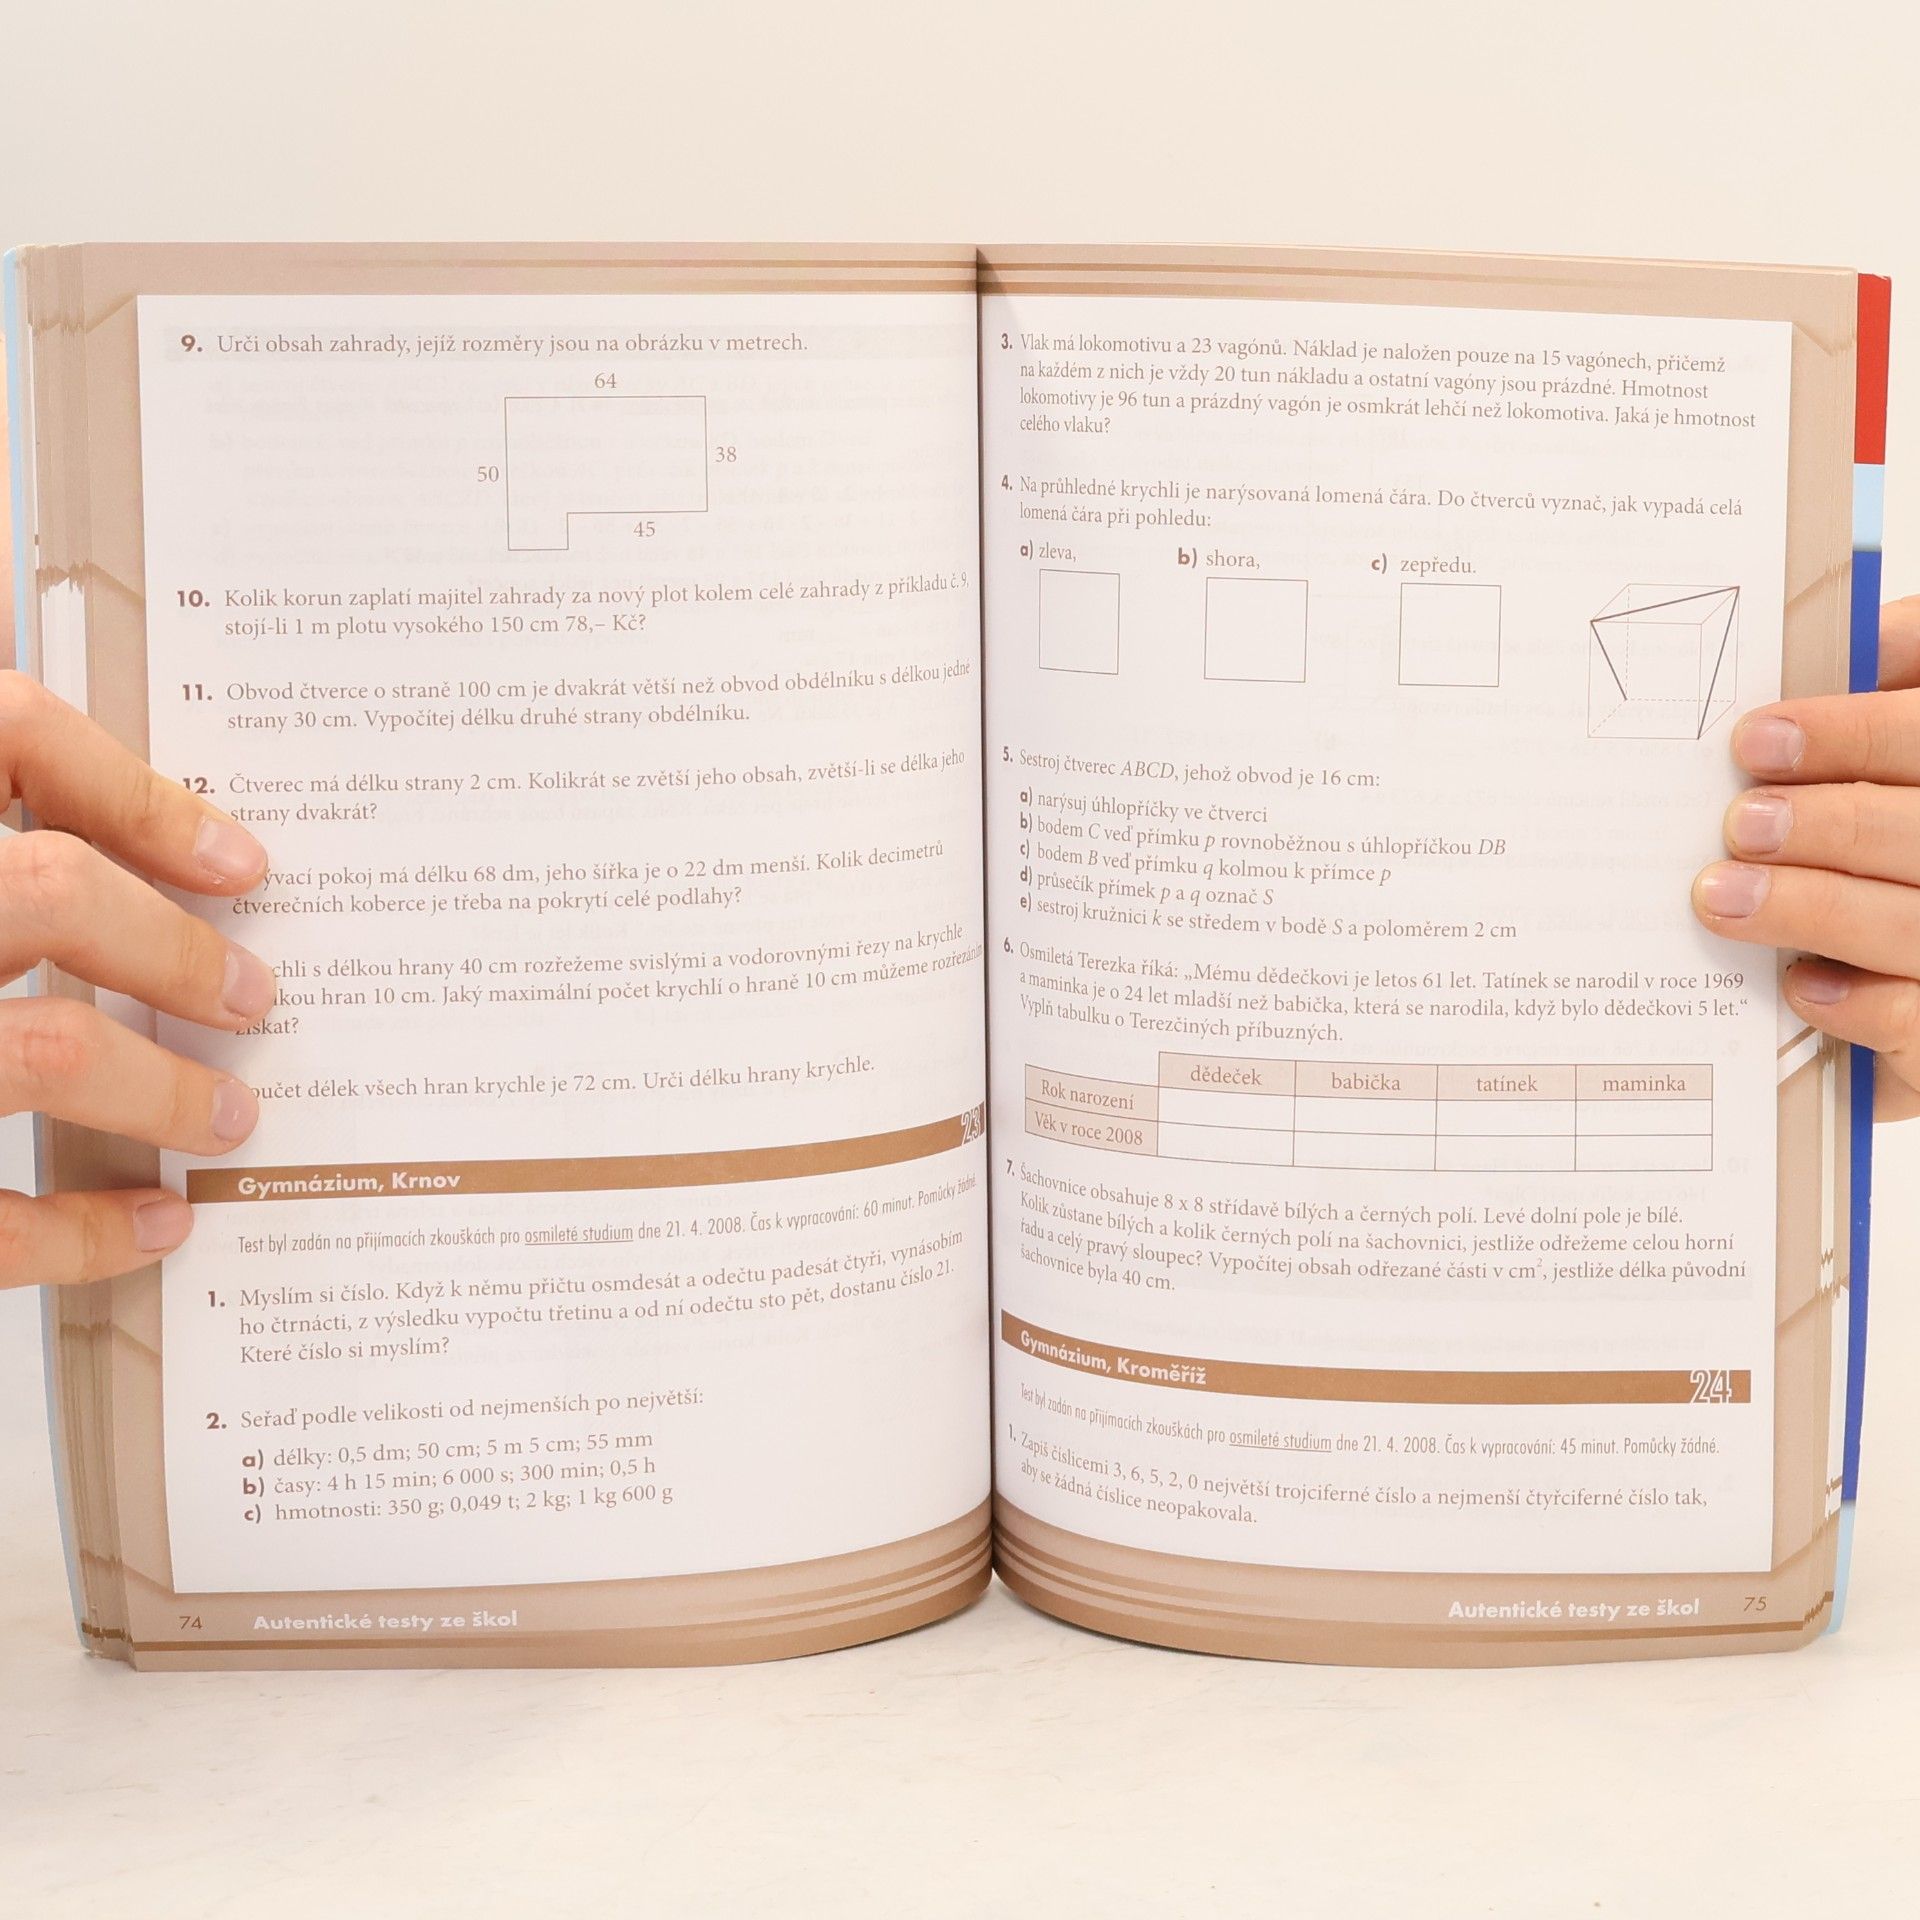 9. Urči obsah zahrady, jejíž rozměry jsou na obrázku v metrech.
64
50
38
45
10. Kolik korun zaplatí majitel zahrady za nový plot kolem celé zahrady z příkladu č. 9,
stojí-li 1 m plotu vysokého 150 cm 78,– Kč?
11. Obvod čtverce o straně 100 cm je dvakrát větší než obvod obdélníku s délkou jedné
strany 30 cm. Vypočítej délku druhé strany obdélníku.
12. Čtverec má délku strany 2 cm. Kolikrát se zvětší jeho obsah, zvětší-li se délka jeho
strany dvakrát?
ývací pokoj má délku 68 dm, jeho šířka je o 22 dm menší. Kolik decimetrů
čtverečních koberce je třeba na pokrytí celé podlahy?
chli s délkou hrany 40 cm rozřežeme svislými a vodorovnými řezy na krychle
lkou hran 10 cm. Jaký maximální počet krychlí o hraně 10 cm můžeme rozřezáním
získat?
oučet délek všech hran krychle je 72 cm. Urči délku hrany krychle.
23
Gymnázium, Krnov
Test byl zadán na přijímacích zkouškách pro osmileté studium dne 21. 4. 2008. Čas k vypracování: 60 minut. Pomůcky žádné.
1. Myslím si číslo. Když k němu přičtu osmdesát a odečtu padesát čtyři, vynásobím
ho čtrnácti, z výsledku vypočtu třetinu a od ní odečtu sto pět, dostanu číslo 21.
Které číslo si myslím?
2. Seřaď podle velikosti od nejmenších po největší:
a) délky: 0,5 dm; 50 cm; 5 m 5 cm; 55 mm
b) časy: 4 h 15 min; 6 000 s; 300 min; 0,5 h
c) hmotnosti: 350 g; 0,049 t; 2 kg; 1 kg 600 g
74 Autentické testy ze škol
3. Vlak má lokomotivu a 23 vagónů. Náklad je naložen pouze na 15 vagónech, přičemž
na každém z nich je vždy 20 tun nákladu a ostatní vagóny jsou prázdné. Hmotnost
lokomotivy je 96 tun a prázdný vagón je osmkrát lehčí než lokomotiva. Jaká je hmotnost
celého vlaku?
4. Na průhledné krychli je narýsovaná lomená čára. Do čtverců vyznač, jak vypadá celá
lomená čára při pohledu:
a) zleva, b) shora, c) zepředu.
5. Sestroj čtverec ABCD, jehož obvod je 16 cm:
a) narýsuj úhlopříčky ve čtverci
b) bodem C veď přímku p rovnoběžnou s úhlopříčkou DB
c) bodem B veď přímku q kolmou k přímce p
d) průsečík přímek p a q označ S
e) sestroj kružnici k se středem v bodě S a poloměrem 2 cm
6. Osmiletá Terezka říká: „Mému dědečkovi je letos 61 let. Tatínek se narodil v roce 1969
a maminka je o 24 let mladší než babička, která se narodila, když bylo dědečkovi 5 let.“
Vyplň tabulku o Terezčiných příbuzných.
dědeček babička tatínek maminka
Rok narození
Věk v roce 2008
7. Šachovnice obsahuje 8 x 8 střídavě bílých a černých polí. Levé dolní pole je bílé.
Kolik zůstane bílých a kolik černých polí na šachovnici, jestliže odřežeme celou horní
řadu a celý pravý sloupec? Vypočítej obsah odřezané části v cm², jestliže délka původní
šachovnice byla 40 cm.
Gymnázium, Kroměříž
24
Test byl zadán na přijímacích zkouškách pro osmileté studium dne 21. 4. 2008. Čas k vypracování: 45 minut. Pomůcky žádné.
1. Zapiš číslicemi 3, 6, 5, 2, 0 největší trojciferné číslo a nejmenší čtyřciferné číslo tak,
aby se žádná číslice neopakovala.
Autentické testy ze škol 75